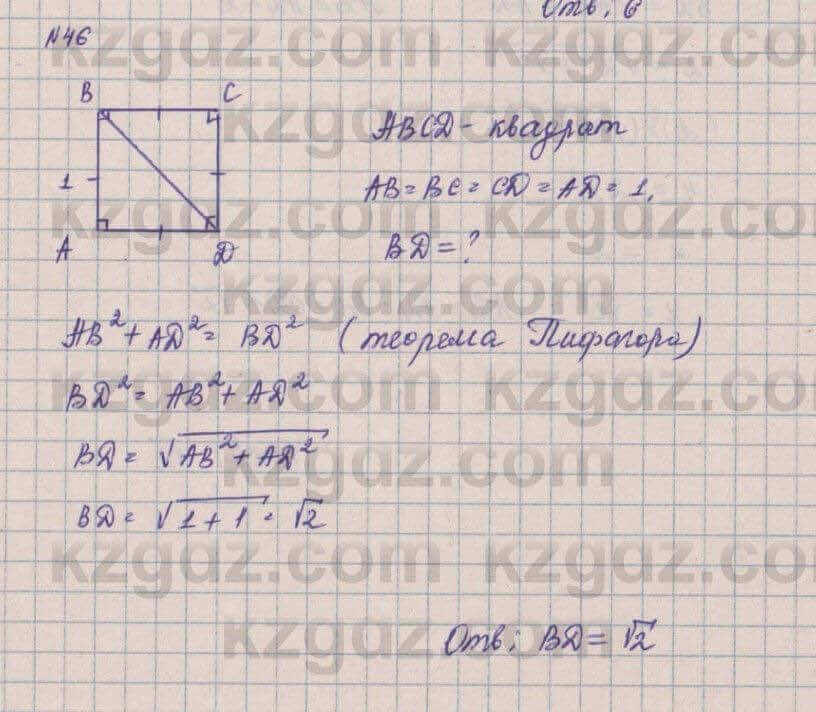 Отв: 6
№46
B C
ABCD - квадрат
1
AB = BC = CD = AD = 1.
A D
BD = ?
AB² + AD² = BD² (теорема Пифагора)
BD² = AB² + AD²
BD = √AB² + AD²
BD = √1 + 1 = √2
Отв: BD = √2
kzgdz.com kzgdz.com
kzgdz.com
kzgdz.com kzgdz.com
kzgdz.com
kzgdz.com kzgdz.com
kzgdz.com
kzgdz.com kzgdz.com
kzgdz.com